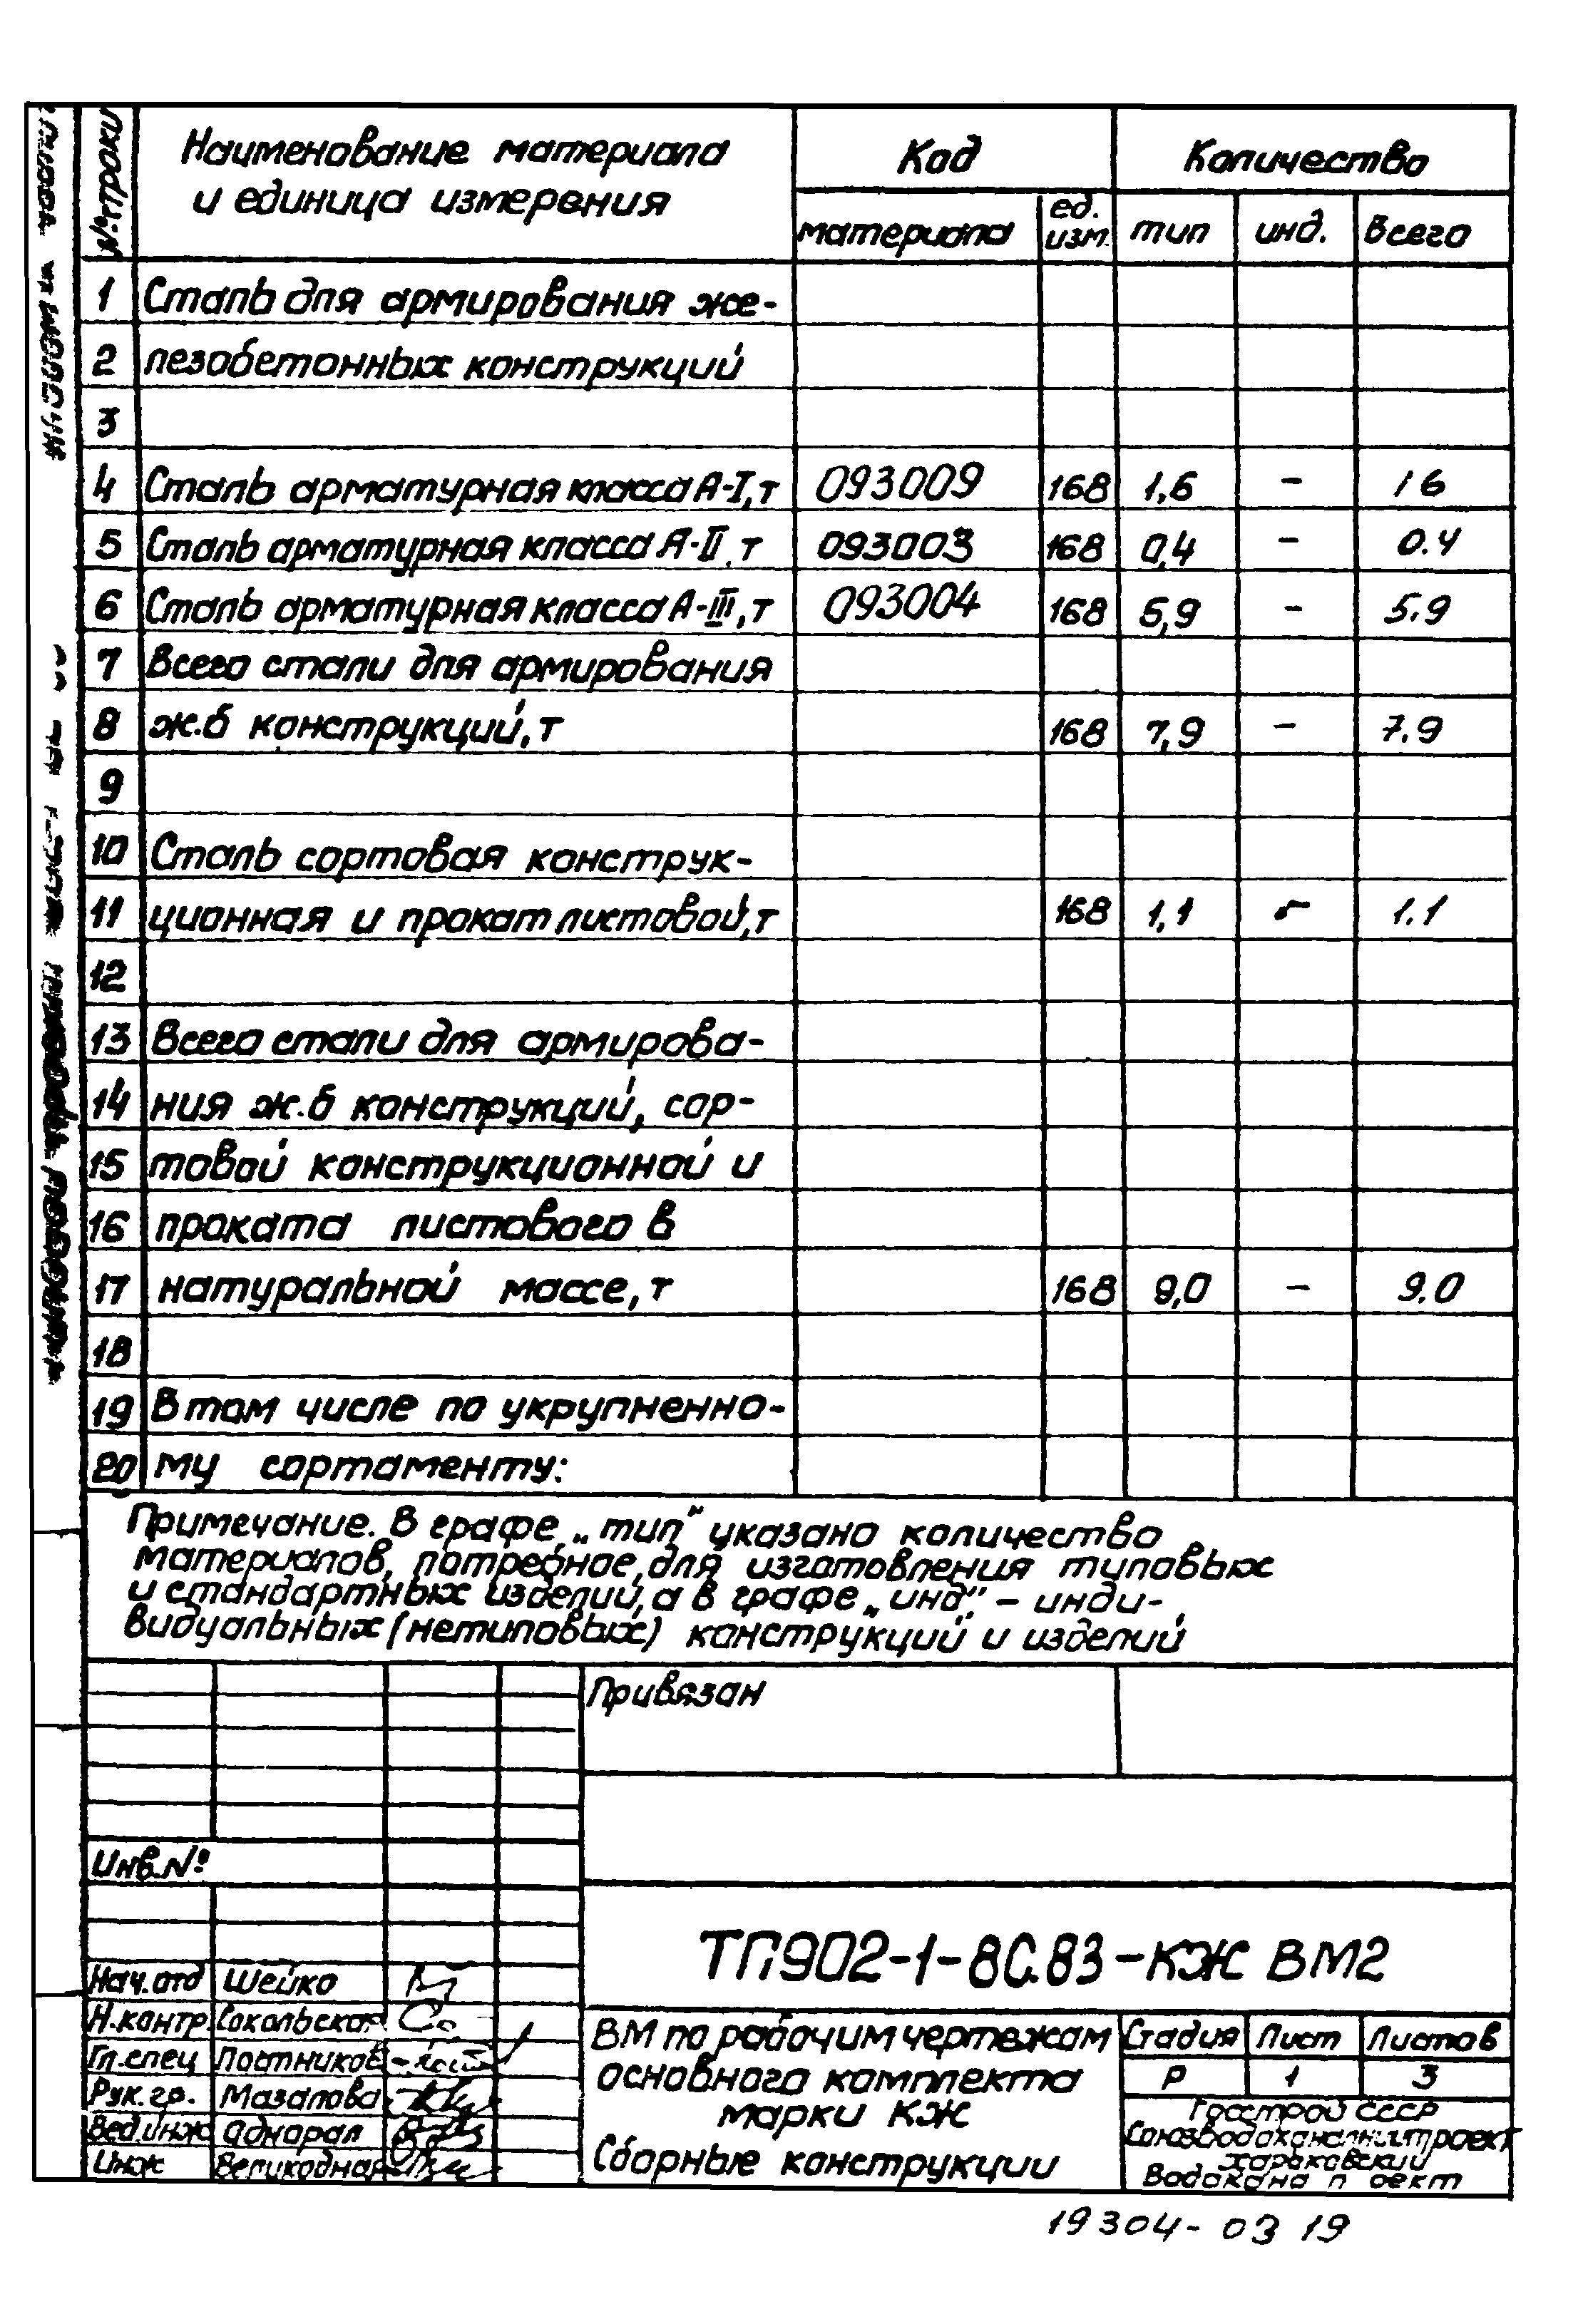 № строки
Наименование материала
и единица измерения
Код
Количество
материала
ед.
изм.
тип
инд.
всего
1 Сталь для армирования же-
2 лезобетонных конструкций
3
4 Сталь арматурная класса А-I, т 093009 168 1,6 – 1 6
5 Сталь арматурная класса А-II, т 093003 168 0,4 – 0.4
6 Сталь арматурная класса А-III, т 093004 168 5,9 – 5.9
7 Всего стали для армирования
8 ж.б конструкций, т 168 7,9 – 7.9
9
10 Сталь сортовая конструк-
11 ционная и прокат листовой, т 168 1,1 – 1.1
12
13 Всего стали для армирова-
14 ния ж.б конструкций, сор-
15 товой конструкционной и
16 проката листового в
17 натуральной массе, т 168 9,0 – 9.0
18
19 В том числе по укрупненно-
20 му сортаменту:
Примечание. В графе „тип" указано количество
материалов, потребное, для изготовления типовых
и стандартных изделий, а в графе „инд." – инди-
видуальных (нетиповых) конструкций и изделий
Привязан
Инв.№
ТП902-1-80.83-КЖ ВМ2
Нач.отд Шейко
Н.контр. Сокольская
Гл.спец Постников
Рук.гр. Мазалова
Вед.инж Аднарал
Инж Великодная
ВМ по рабочим чертежам
основного комплекта
марки КЖ
Сборные конструкции
Стадия Лист Листов
Р 1 3
Госстрой СССР
Союзводоканалниипроект
Харьковский
Водокана п оект
19304-03 19